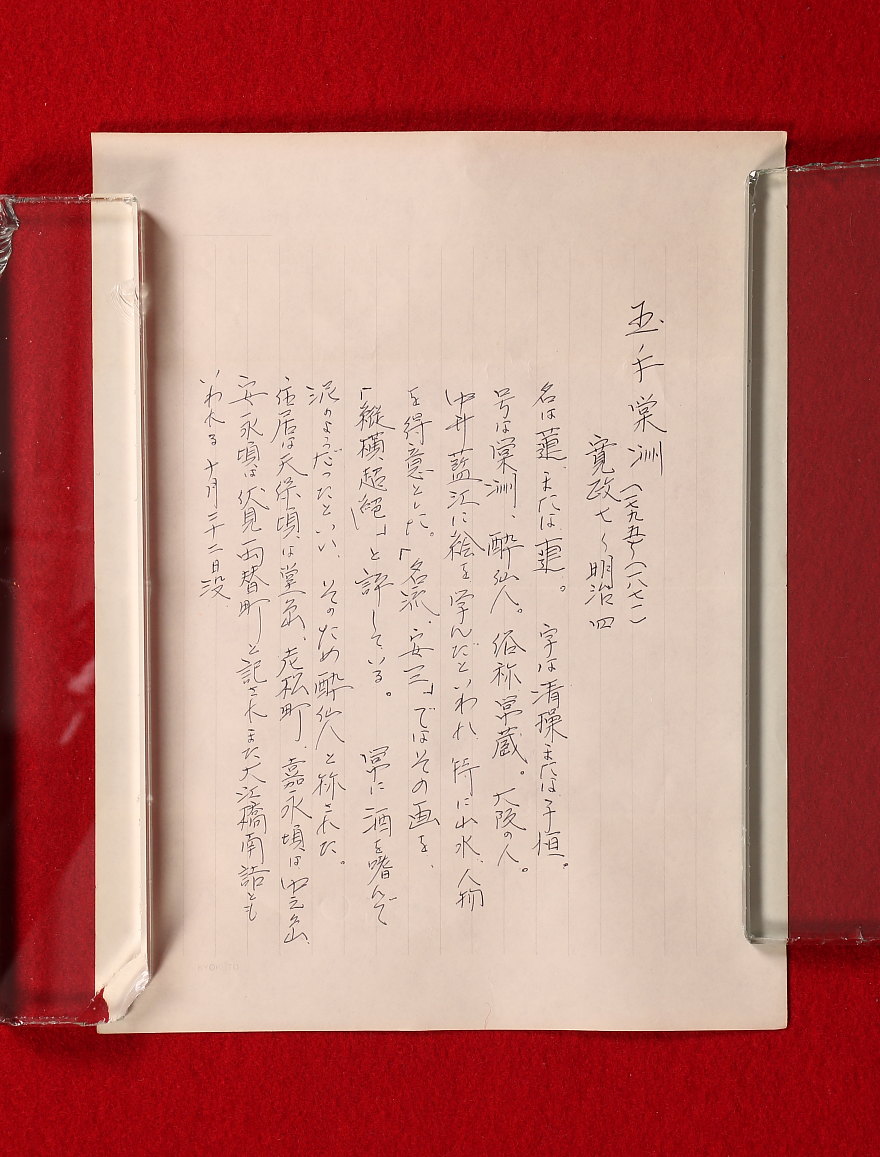 玉手棠洲（一七九五〜一八七一）
寛政七〜明治四
名は蓳、または菫。字は清璪または子恒。
号は棠洲、酔仙人。俗称常蔵。大阪の人。
中井藍江に絵を学んだといわれ、特に山水、人物
を得意とした。「名流、安三」ではその画を、
「縦横、超絶」と評している。常に酒を嗜んで
泥のようだったといい、そのため酔仙人と称された。
住居は天保頃は堂島、老松町、嘉永頃は中之島、
安永頃は伏見両替町と記されまた大江橋南詰とも
いわれる 十月二十二日没、
KYOKUTO